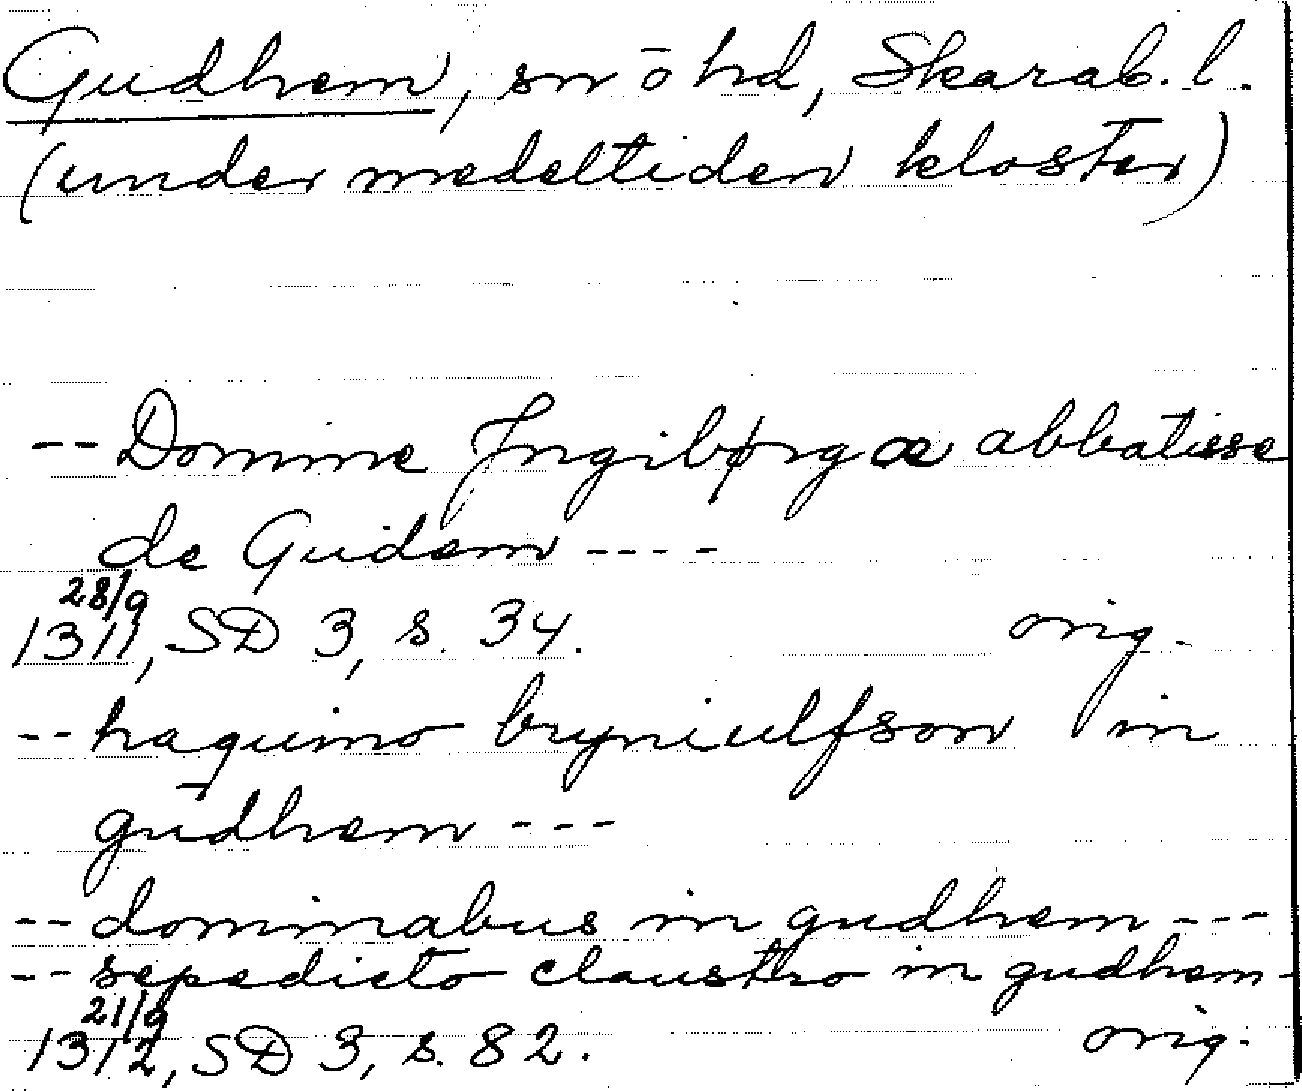 Gudhem, sn o hd, Skarab. l.
(under medeltiden kloster)
-- Domine Jngibørgæ abbatisse
de Gudem ----
28/9
1311, SD 3, s. 34. orig.
-- haquino bryniulfson in
gudhem ---
-- dominabus in gudhem ---
-- sepedicto claustro in gudhem -
21/9
1312, SD 3, s. 82. orig.